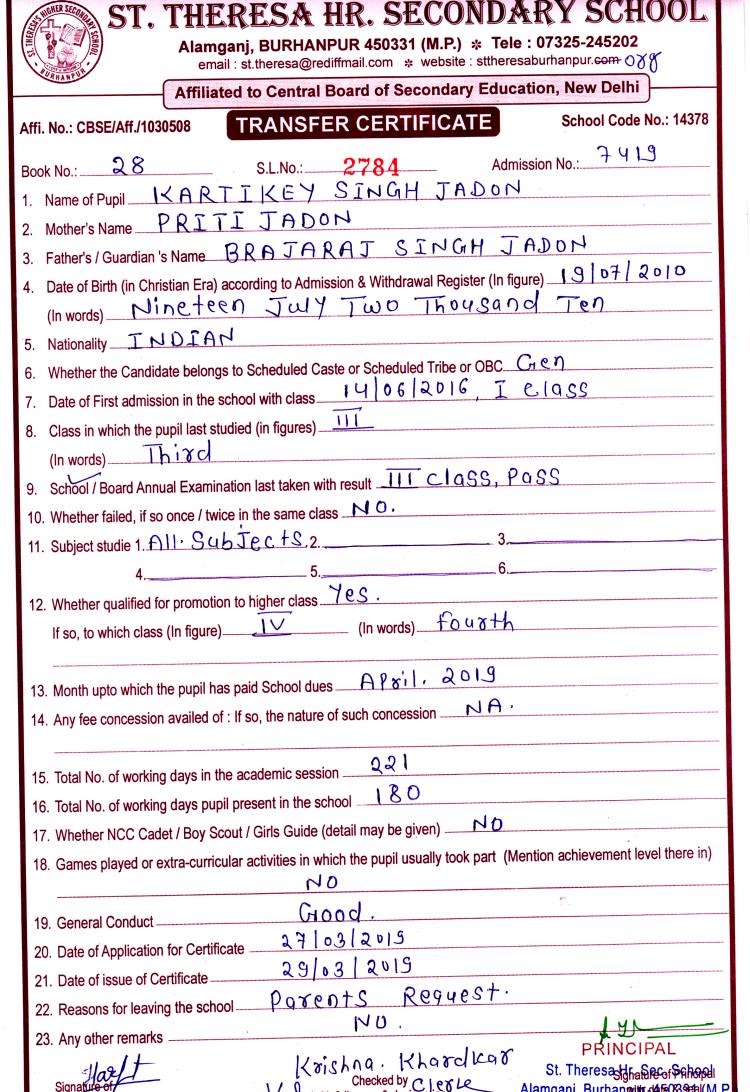 ST. THERESA HR. SECONDARY SCHOOL
ST. THERESA'S HIGHER SECONDARY SCHOOL
BURHANPUR
Alamganj, BURHANPUR 450331 (M.P.) ✻ Tele : 07325-245202
email : st.theresa@rediffmail.com ✻ website : sttheresaburhanpur.com org
Affiliated to Central Board of Secondary Education, New Delhi
Affi. No.: CBSE/Aff./1030508 TRANSFER CERTIFICATE School Code No.: 14378
Book No.: 28 S.L.No.: 2784 Admission No.: 7419
1. Name of Pupil KARTIKEY SINGH JADON
2. Mother's Name PRITI JADON
3. Father's / Guardian 's Name BRAJARAJ SINGH JADON
4. Date of Birth (in Christian Era) according to Admission & Withdrawal Register (In figure) 19/07/2010
(In words) Nineteen July Two Thousand Ten
5. Nationality INDIAN
6. Whether the Candidate belongs to Scheduled Caste or Scheduled Tribe or OBC Gen
7. Date of First admission in the school with class 14/06/2016, I class
8. Class in which the pupil last studied (in figures) III
(In words) Third
9. School / Board Annual Examination last taken with result III class, Pass
10. Whether failed, if so once / twice in the same class NO.
11. Subject studie 1. All. Subjects. 2. 3.
4. 5. 6.
12. Whether qualified for promotion to higher class Yes.
If so, to which class (In figure) IV (In words) fourth
13. Month upto which the pupil has paid School dues April. 2019
14. Any fee concession availed of : If so, the nature of such concession NA.
15. Total No. of working days in the academic session 221
16. Total No. of working days pupil present in the school 180
17. Whether NCC Cadet / Boy Scout / Girls Guide (detail may be given) NO
18. Games played or extra-curricular activities in which the pupil usually took part (Mention achievement level there in)
NO
19. General Conduct Good.
20. Date of Application for Certificate 27/03/2019
21. Date of issue of Certificate 29/03/2019
22. Reasons for leaving the school Parents Request.
23. Any other remarks NO.
PRINCIPAL
Krishna. Khardkar
St. Theresa Hr. Sec. School
Signature of Checked by Clerk Signature of Principal
Alamganj, Burhanpur 450331 (M.P.